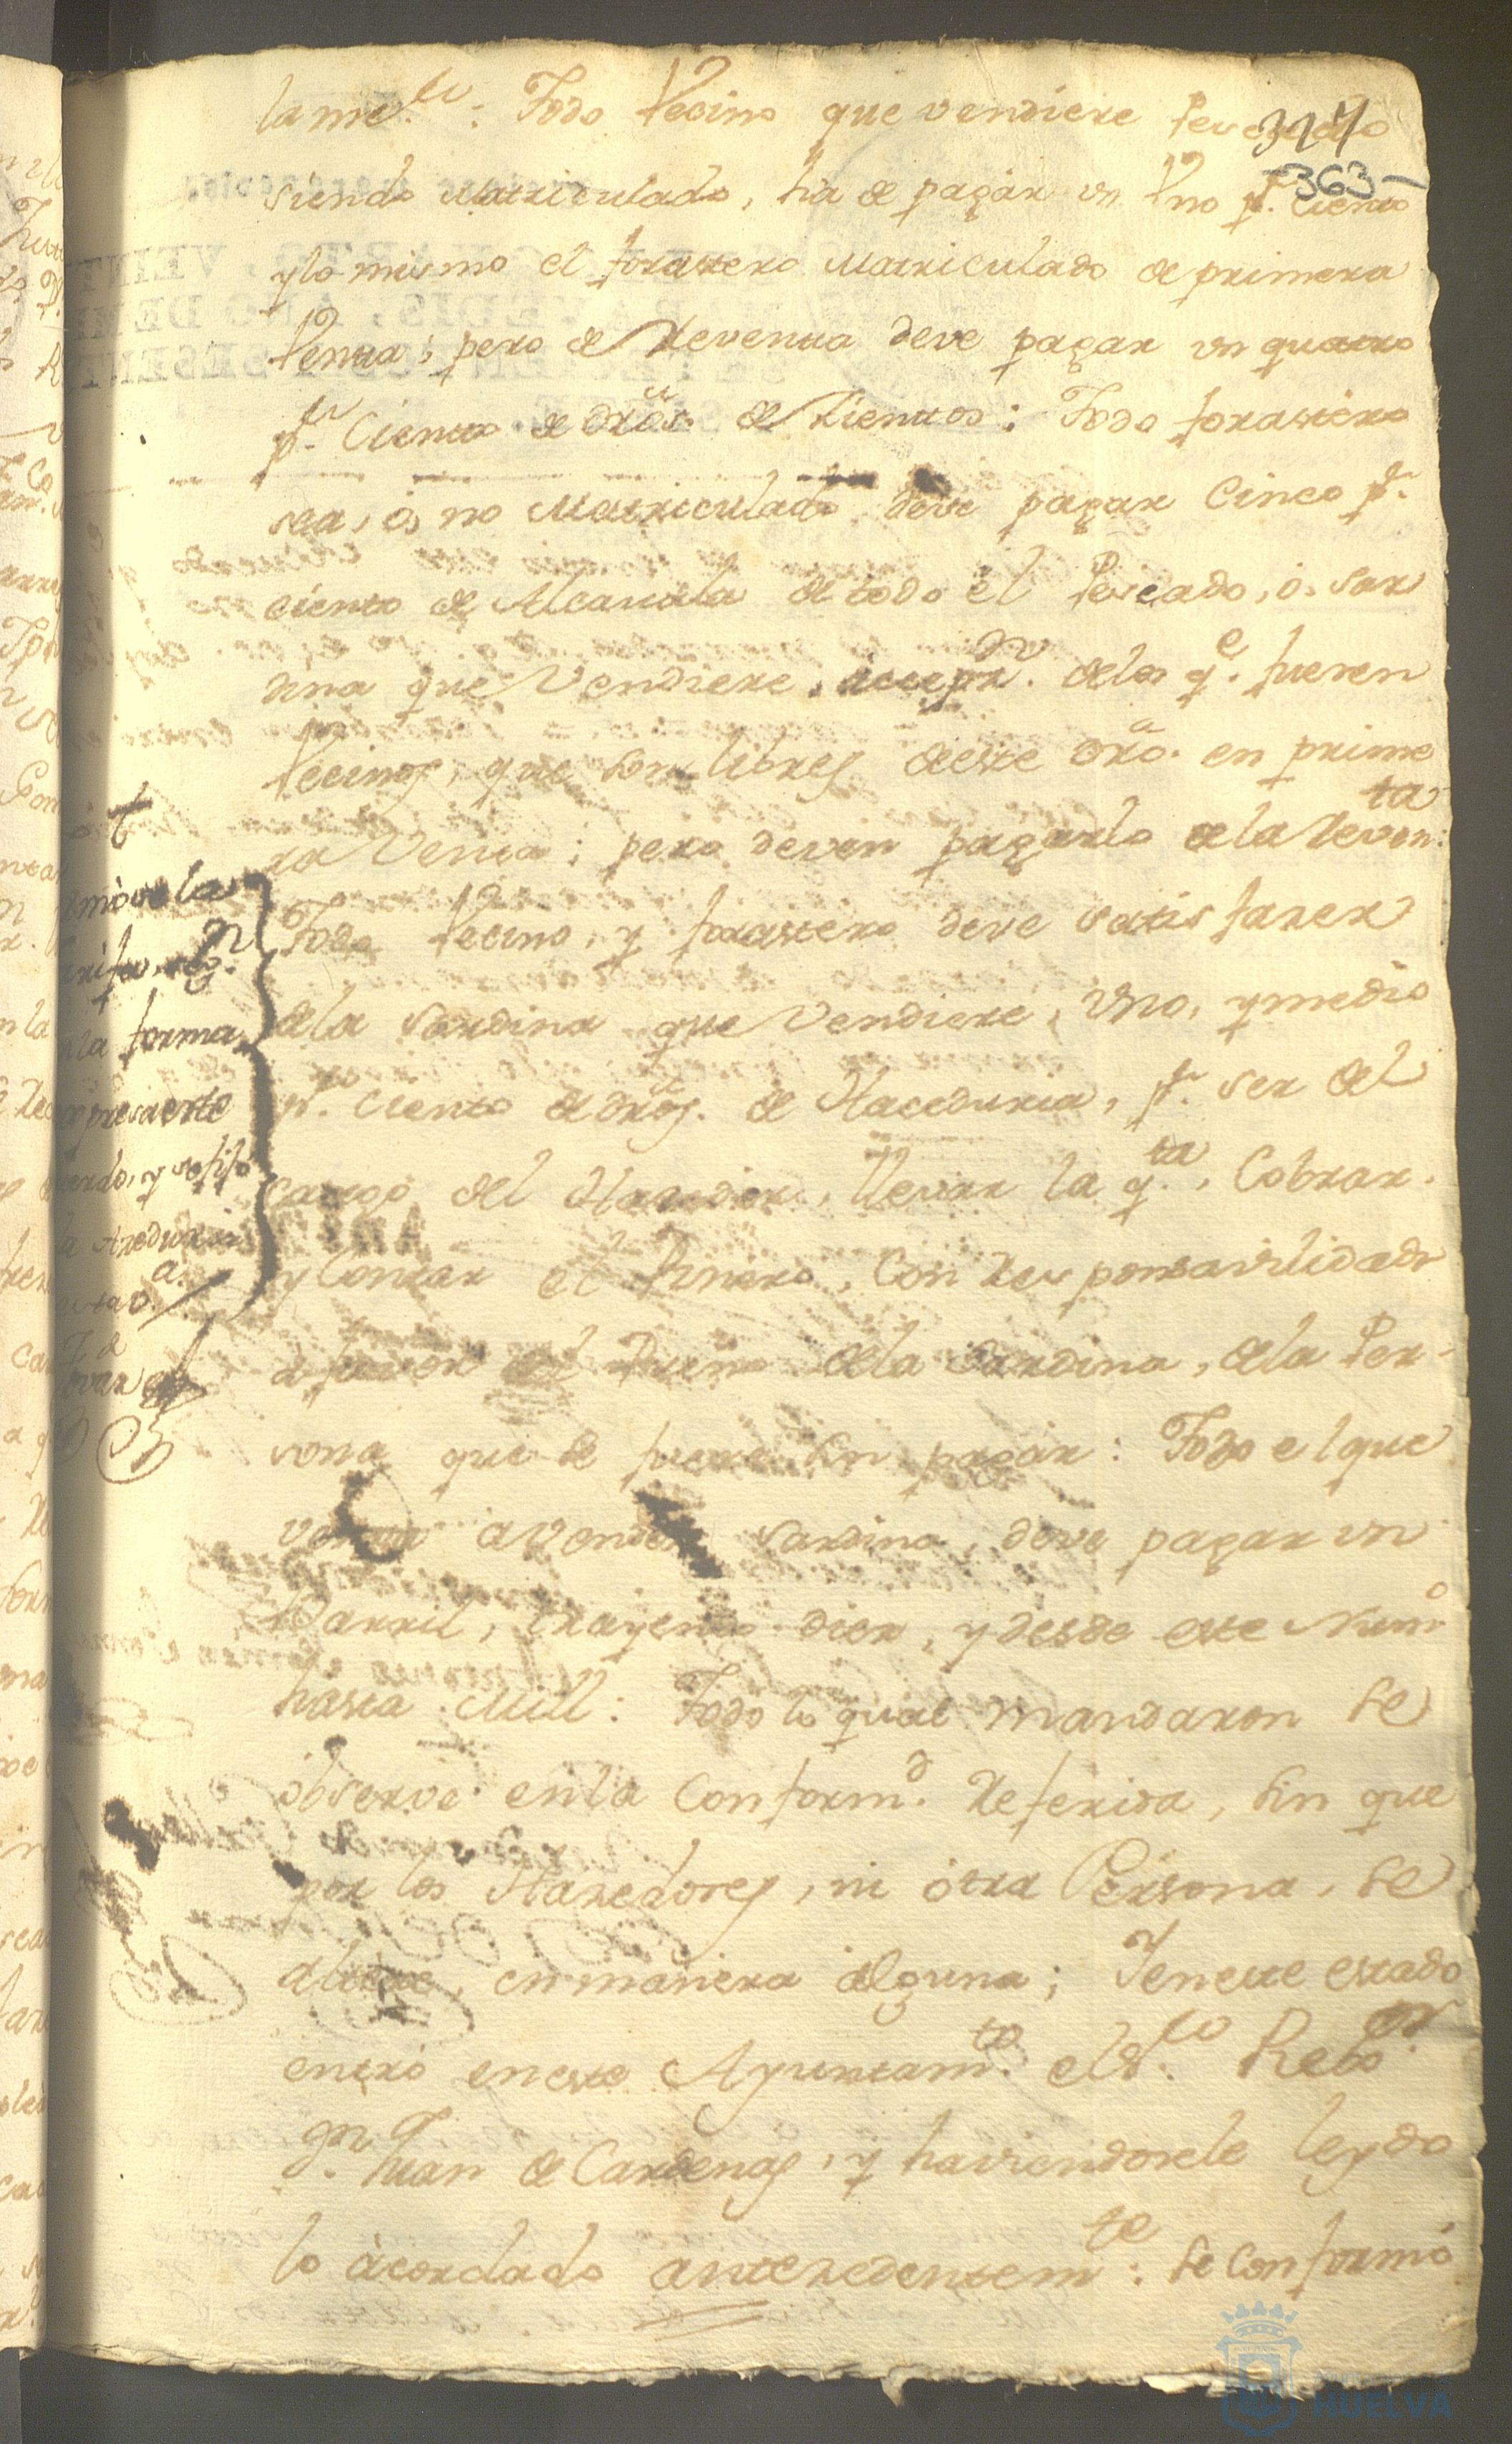 lam.te: Todo Vecino que vendiere Pescado
324
363
siendo Matriculado, ha de pagar un Uno p.r Ciento
ylo mismo el forastero Matriculado de primera
Venta; pero de Reventa deve pagar un quatro
p.r Ciento de dros. de Zientos: Todo forastero
sea, ó, no Matriculado, deve pagar Cinco p.r
ciento de Alcavala de todo el Pescado, ó, sar
dina que Vendiere, de los q.e fueren
Vecinos, que son libres deeste dro. en prime
ra Venta; pero deven pagarlo dela Reven.ta
Todo Vecino, y forastero deve satisfazer
dela sardina que Vendiere, Uno, ymedio
p.r Ciento de dros. de Hazeduria, p.r ser del
cargo del Hazedor, llevar la q.ta, Cobrar.
yContar el Dinero, Con Responsavilidad
a favor del Dueño dela Sardina, dela Per-
sona que se fuere sin pagar: Todo elque
venga avender sardina, deve pagar un
Barril, trayendo diez, ydesde este Num.o
hasta Mill: Todo lo qual mandaron se
observe enla Conform.d Referida, sin que
por los Hazedores, ni otra Persona, se
altere, enmanera alguna; Yeneste estado
entró eneste Ayuntam.to elS.r
D.n Juan de Cardenas, y haviendosele leydo
lo acordado antezedentem.te: se Conformó
la
forma
este
y
HUELVA